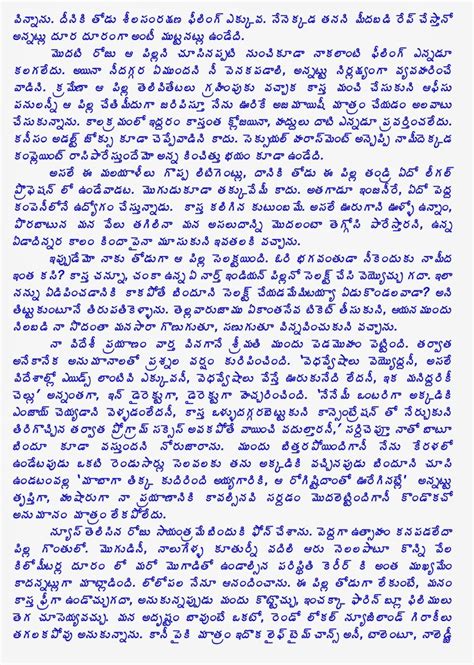 విన్నాను. దీనికి తోడు శీలసంరక్షణ ఫీలింగ్ ఎక్కువ. నేనెక్కడ తనని మీదబడి రేప్ చేస్తానో
అన్నట్లు దూర దూరంగా అంటీ ముట్టనట్లు ఉండేది.
మొదటి రోజు ఆ పిల్లని చూసినప్పటి నుంచికూడా నాకలాంటి ఫీలింగ్ ఎన్నడూ
కలగలేదు. అయినా నీదగ్గర ఏముందని నీ వెనకపడాలి, అన్నట్టు నిర్లక్ష్యంగా వ్యవహరించే
వాడిని. క్రమేణా ఆ పిల్ల తెలివితేటలు గ్రహింపుకు వచ్చాక కాస్త మంచి చేసుకుని ఆఫీసు
పనులన్నీ ఆ పిల్ల చేతిమీదుగా జరిపిస్తూ నేను ఊరికే అజమాయిషీ మాత్రం చేయడం అలవాటు
చేసుకున్నాను. కాలక్రమంలో ఇద్దరం కాస్తంత క్లోజయినా, హద్దులు దాటి ఎన్నడూ ప్రవర్తించలేదు.
కనీసం అడల్ట్ జోక్సు కూడా చెప్పేవాడిని కాదు. సెక్సుయల్ హరాస్‌మెంట్ అన్చెప్పి నామీదెక్కడ
కంప్లైంట్ రాసిపారేస్తుందేమో అన్న కించిత్తు భయం కూడా ఉండేది.
అసలే ఈ మలయాళీలు గొప్ప లిటిగెంట్లు, దానికి తోడు ఈ పిల్ల తండ్రి ఏదో లీగల్
ప్రొఫెషన్ లో ఉండేవాడట. మొగుడుకూడా తక్కువేమీ కాదు. అతగాడూ ఇంజనీరే, ఏదో పెద్ద
కంపెనీలోనే ఉద్యోగం చేస్తున్నాడు. కాస్త కలిగిన కుటుంబమే. అసలే ఊరుగాని ఊళ్ళో ఉన్నాం,
పొరబాటున మన వేలు తగిలినా మన అసలుదాన్ని మొదలంటా తెగ్గోసి పారేస్తారని, ఉన్న
ఏడాదిన్నర కాలం కిందా పైనా మూసుకుని ఇవతలకి వచ్చాను.
ఇప్పుడేమో నాకు తోడుగా ఆ పిల్ల సెలక్టయింది. ఓరి భగవంతుడా నీకెందుకు నామీద
ఇంత కసి? కాస్త చన్నూ, చంకా ఉన్న ఏ నార్త్ ఇండియన్ పిల్లనో సెలక్ట్ చేసి వెయ్యొచ్చు గదా. ఇలా
నన్ను ఏడిపించడానికి కాకపోతే బిందూనీ సెలక్ట్ చేయడమేమిటయ్యా ఏడుకొండలవాడా? అని
తిట్టుకుంటూనే తిరుపతికెళ్ళాను. తెల్లవారుజాము ఏకాంతసేవ టికెట్ తీసుకుని, ఆయనముందు
నిలబడి నా సొదంతా మనసారా గొణుగుతూ, సణుగుతూ విన్నవించుకుని వచ్చాను.
నా విదేశీ ప్రయాణం వార్త వినగానే శ్రీమతి ముందు పెడమొహం పెట్టింది. తర్వాత
అనేకానేక అనుమానాలతో ప్రశ్నల వర్షం కురిపించింది. 'వెధవ్వేషాలు వెయ్యొద్దనీ, అసలే
విదేశాల్లో ఎయిడ్స్ లాంటివి ఎక్కువనీ, వెధవ్వేషాలు వేస్తే ఊరుకునేది లేదనీ, ఇక మనిద్దరికీ
చెల్లు' అన్నంతగా, ఇన్ డైరెక్టుగా, డైరెక్టుగా హెచ్చరించింది. 'నేనేమీ ఒంటరిగా అక్కడికి
ఎంజాయ్ చెయ్యడాని వెళ్ళడంలేదనీ, కాస్త ఒళ్ళుదగ్గరబెట్టుకుని కాన్సెంట్రేషన్ తో నేర్చుకుని
తిరిగొచ్చిన తర్వాత ప్రోగ్రామ్ సక్సెస్ అవకపోతే వాయించి వదులుతారనీ,' సర్దిచెప్తూ నాతో బాటూ
బిందూ కూడా వస్తుందని నోరుజారాను. ముందు బిత్తరపోయిందిగానీ నేను కేరళలో
ఉండేటపుడు ఒకటి రెండుసార్లు సెలవలకు తను అక్కడికి వచ్చినపుడు బిందూని చూసి
ఉండటంవల్ల 'మాబాగా తిక్క కుదిరింది అయ్యగారికి, ఆ రోగిష్టిదాంతో ఊరేగినట్లే' అన్నట్లు
తృప్తిగా, హుషారుగా నా ప్రయాణానికి కావల్సినవి సర్దడం మొదలెట్టిందిగానీ కొండొకచో
అనుమానం మాత్రం లేకపోలేదు.
న్యూస్ తెలిసిన రోజు సాయంత్రమే బిందుకి ఫోన్ చేశాను. పెద్దగా ఉత్సాహం కనపడలేదా
పిల్ల గొంతులో. మొగుడినీ, నాలుగేళ్ళ కూతుర్నీ వదిలి ఆరు నెలలపాటూ కొన్ని వేల
కిలోమీటర్ల దూరం లో మరో మొగాడితో ఉండాల్సిన పరిస్థితి కెరీర్ కి అంత ముఖ్యమేం
కాదన్నట్లుగా మాట్లాడింది. లోలోపల నేనూ ఆనందించాను. ఈ పిల్ల తోడుగా లేకుంటే, మనం
కాస్త ఫ్రీగా ఉండొచ్చుగదా, అనుకున్నప్పుడు మందు కొట్టొచ్చు, ఇంచక్కా ఫారిన్ బ్లూ ఫిలిములు
తెగ చూసెయ్యవచ్చు. మన అదృష్టం బావుంటే ఒకటో, రెండో లోకల్ న్యూజిలాండ్ గిరాకీలు
తగలకపోవు అనుకున్నాను. కానీ పైకి మాత్రం ఇదొక లైఫ్ టైమ్ చాన్స్ అనీ, టాలెంటూ, నాలెడ్జీ